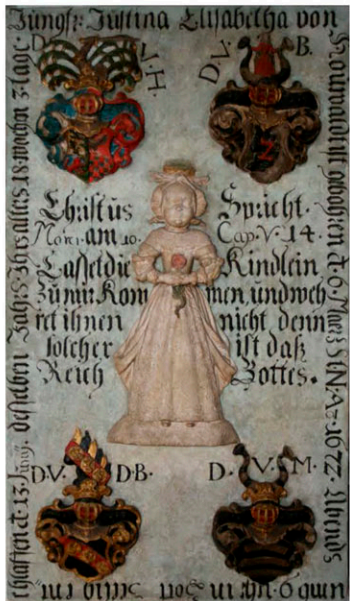 Jungfr: Justina Elisabetha von
Hoium ist gebohren d. 6. Martz S:N: Ao 1672. Abends
umb 6 Uhr in Gott Selig ent,,
schlaffen d. 13. Juny. desselben Jahrs Ihres alters 18. wochn 3. tage.
D. V. H.
D. V. B.
Christus Spricht.
Marci. am 10. Cap. V. 14.
Lasset die Kindlein
Zu mir Kommen, und weh
ret ihnen nicht denn
solcher ist daß
Reich Gottes.
D. V. D. B.
D. V. M.